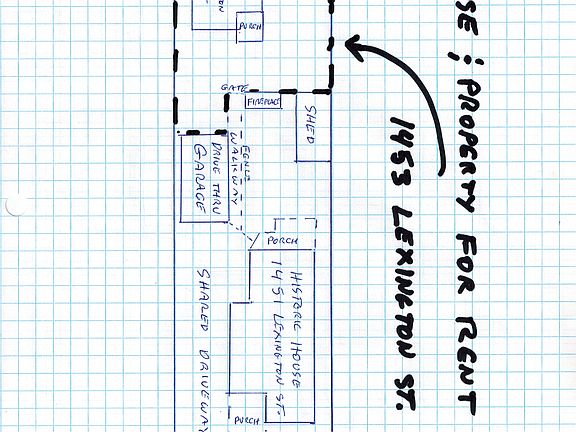 SE ; PROPERTY FOR RENT
1453 LEXINGTON ST.
PORCH
GATE
FIREPLACE
SHED
WALKWAY
DRIVE THRU
GARAGE
PORCH
HISTORIC HOUSE
1451 LEXINGTON ST.
SHARED DRIVEWAY
PORCH